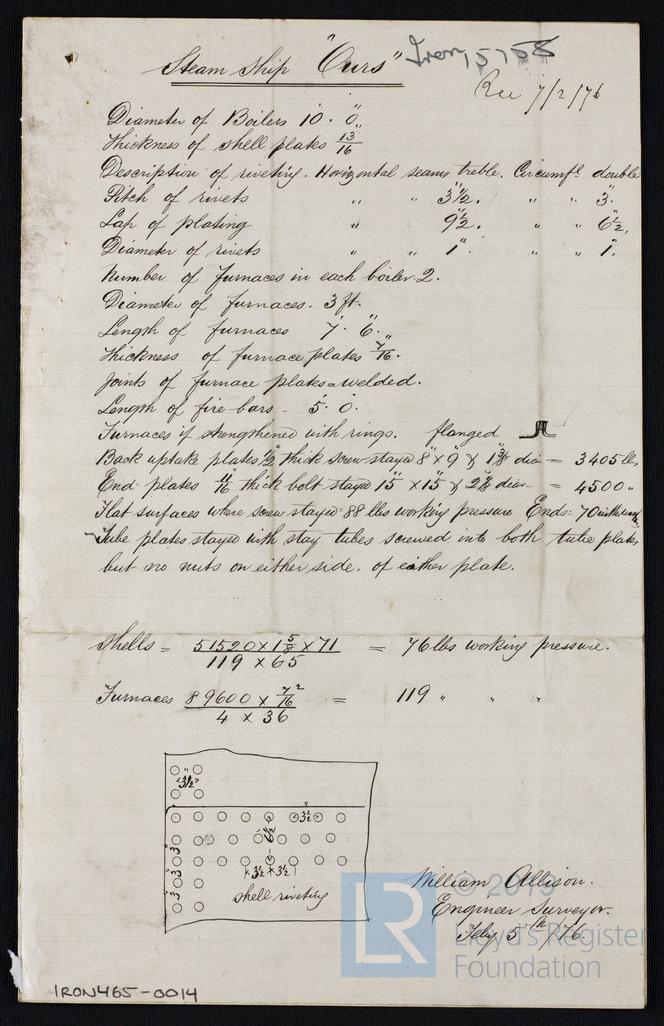 Steam Ship "Ours"
Iron 5758
Rec 7/2/76
Diameter of Boilers 10' . 0"
Thickness of shell plates 13/16"
Description of riveting. Horizontal seams treble. Circumfl double
Pitch of rivets " " 3 1/2". " " 3".
Lap of plating " 9 1/2". " " 6 1/2".
Diameter of rivets " " 1". " " 1".
Number of furnaces in each boiler. 2.
Diameter of furnaces. 3 ft.
Length of furnaces 7' . 6"
Thickness of furnace plates 7/16".
Joints of furnace plates = welded.
Length of fire bars - 5' . 0".
Furnaces if strengthened with rings. flanged
Back uptake plates 1/2" thick screw stayed 8" x 9" & 1 3/8" dia = 3405 lbs
End plates 11/16" thick bolt stayed 15" x 15" & 2 1/8" diar = 4500 "
Flat surfaces where screw stayed = 88 lbs working pressure Ends = 70
Tube plates stayed with stay tubes screwed into both tube plates
but no nuts on either side. of either plate.
Shells = 51520 x 1 5/8 x 71 / 119 x 65 = 76 lbs working pressure.
Furnaces 89600 x 7/16 ² / 4 x 36 = 119 " " "
3 1/2"
3 1/2"
6 1/2
3" 3" 3" 3"
3 1/2 x 3 1/2
shell riveting
William Allison.
Engineer Surveyor.
Feby 5th /76.
LR
© 2019
Lloyd's Register
Foundation
IRON465-0014